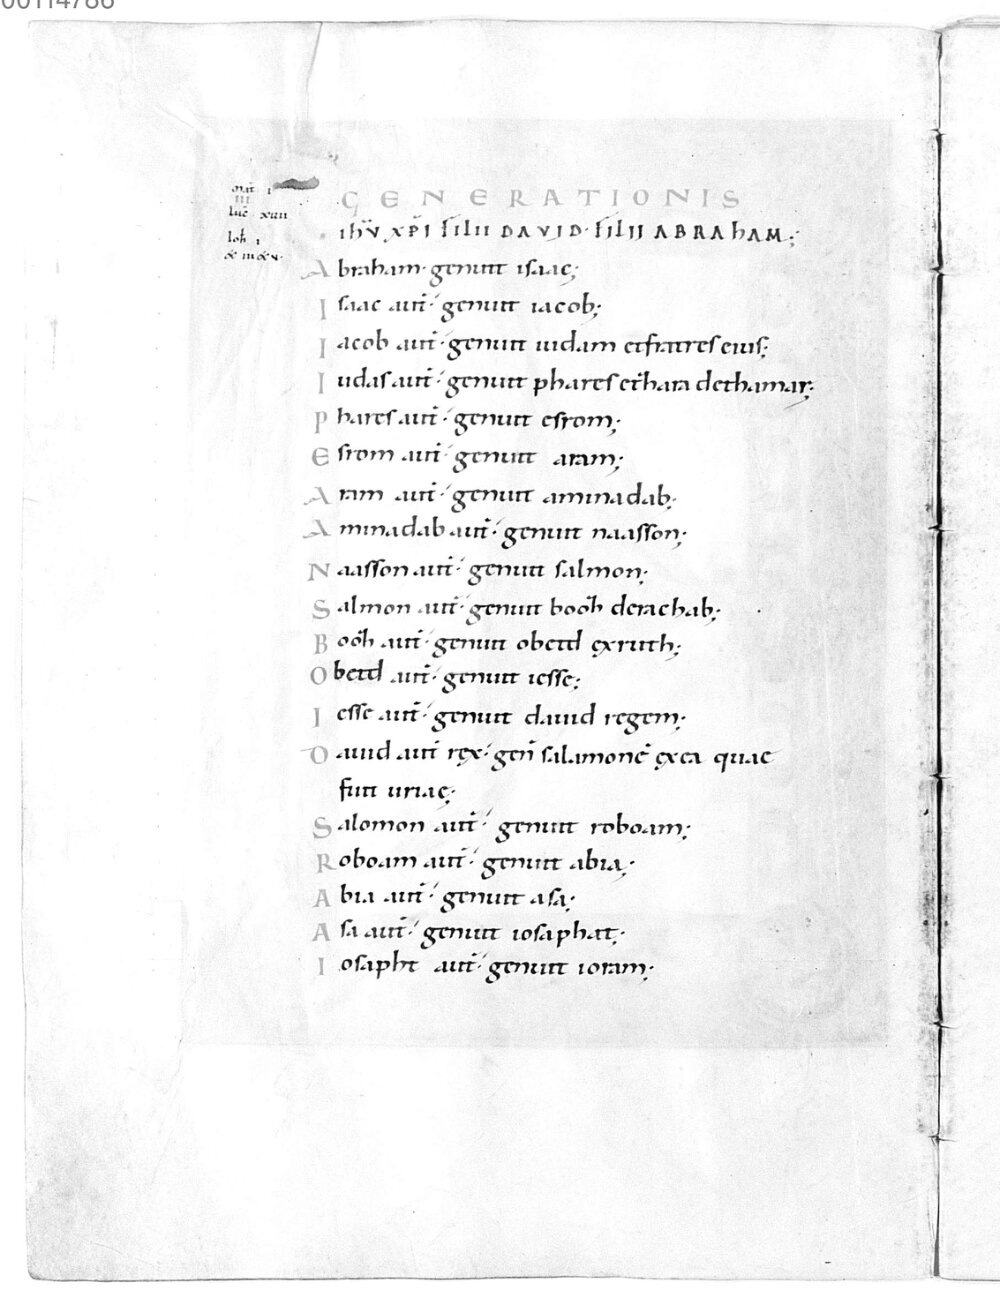 mat̄ i
III
luc̄ xuiii
Ioh̄ i
GENERATIONIS
ihū xp̄i filii DAVID · filii ABRAHAM;
Abraham · genuit isaac;
Isaac aut̄ · genuit iacob;
Iacob aut̄ · genuit iudam et fratres eius;
Iudas aut̄ · genuit phares et zara de thamar;
Phares aut̄ · genuit esrom;
Esrom aut̄ · genuit aram;
Aram aut̄ · genuit aminadab;
Aminadab aut̄ · genuit naasson;
Naasson aut̄ · genuit salmon;
Salmon aut̄ · genuit booz de rachab;
Booz aut̄ · genuit obeed ex ruth;
Obeed aut̄ · genuit iesse;
Iesse aut̄ · genuit dauid regem;
Dauid aut̄ rex · gen̄ salamonē ex ea quae
fuit uriae;
Salomon aut̄ · genuit roboam;
Roboam aut̄ · genuit abia;
Abia aut̄ · genuit asa;
Asa aut̄ · genuit iosaphat;
Iosapht aut̄ · genuit ioram;